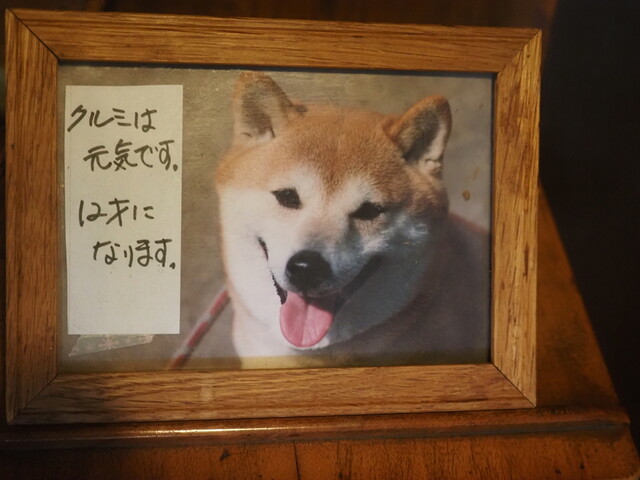 クルミは
元気です。
12才に
なります。